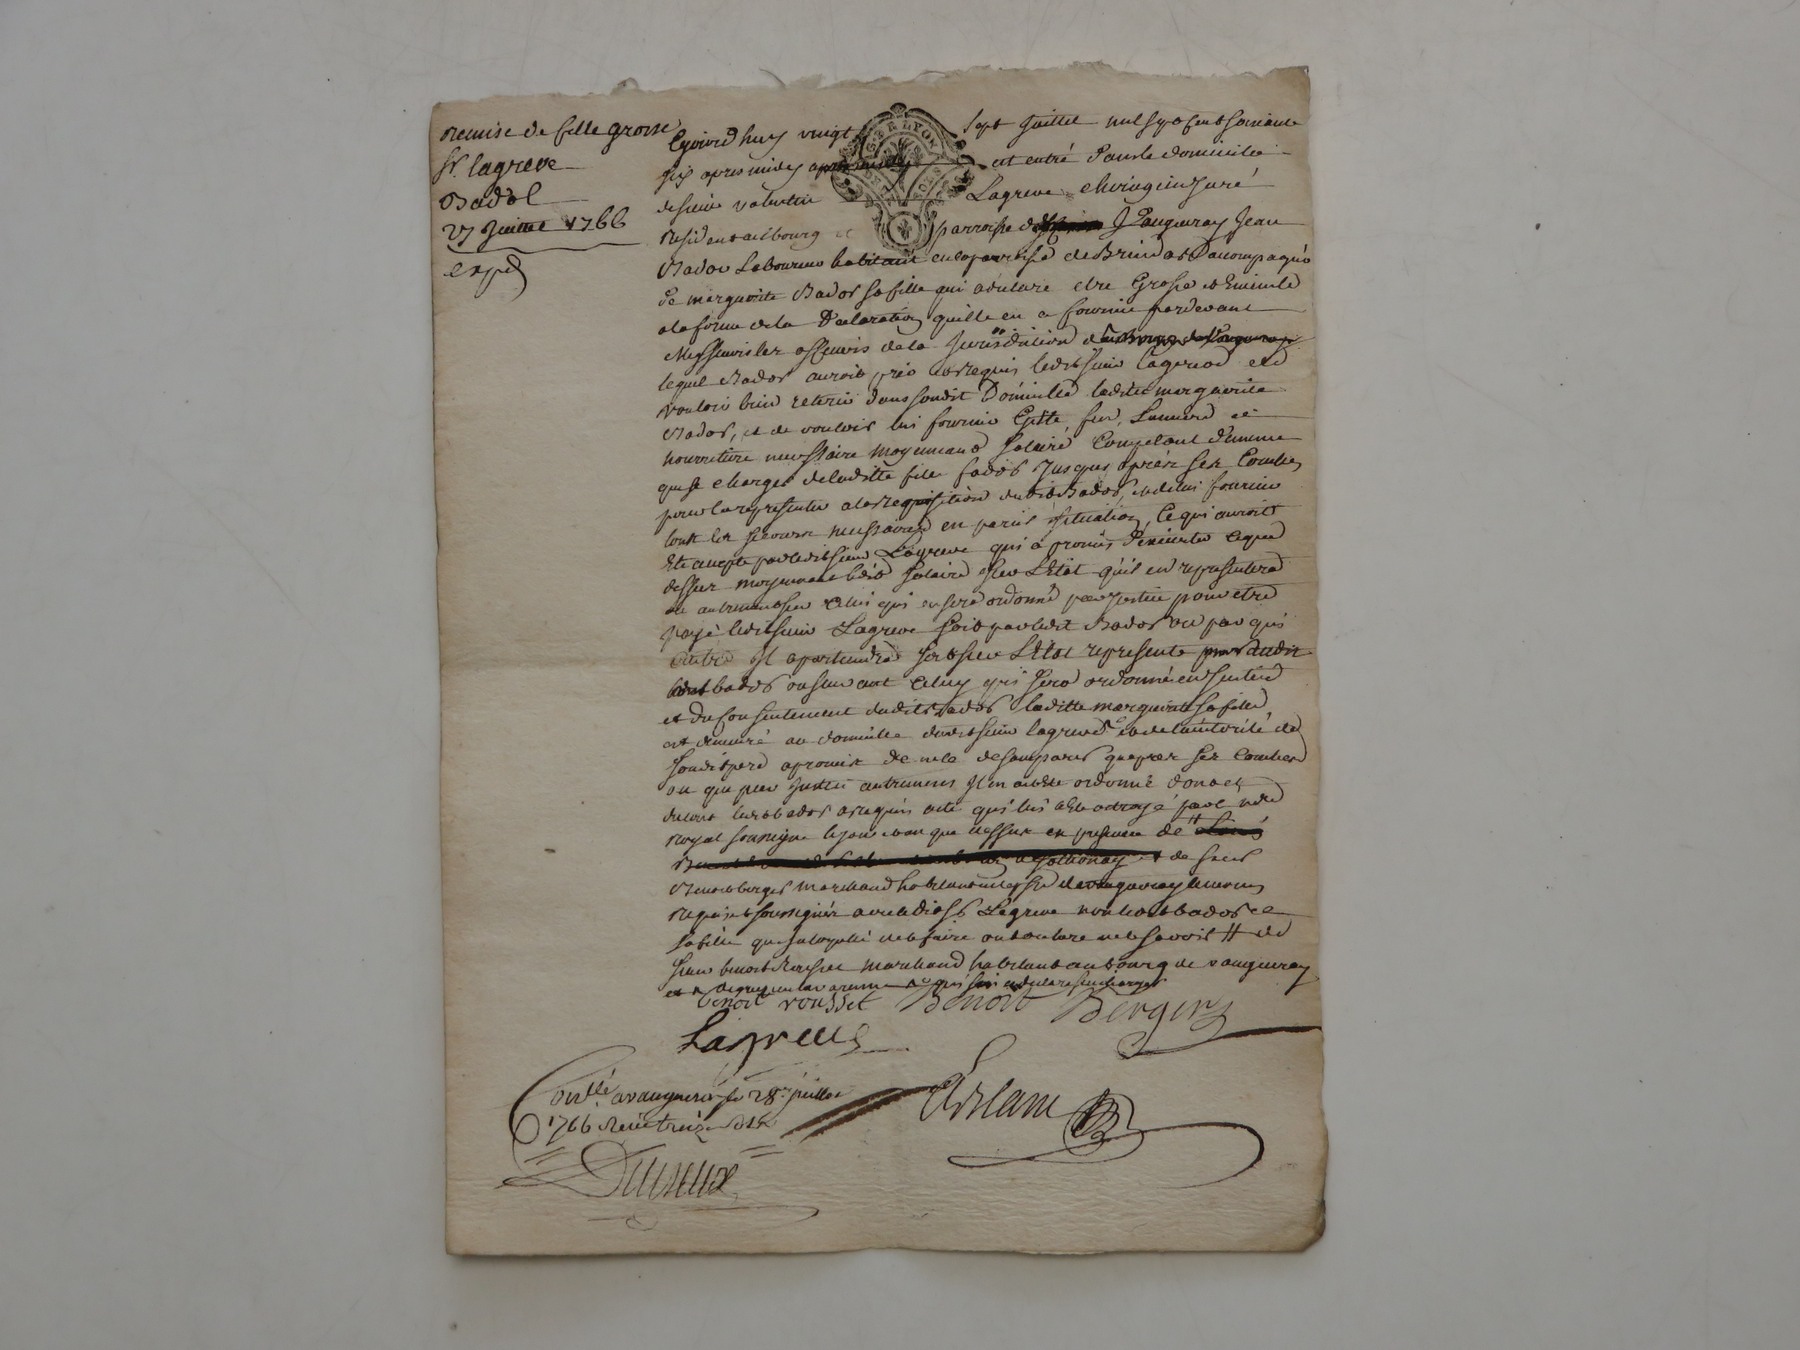 remise de fille grosse
Sr. lagreve
Badol
27 Juillet 1766
expd
Cejourd'huy vingt sept Juillet mil sept cent soixante
six apres midy est entré dans le domicille
de sieur valentin Lagreve chirugien Juré
resident au bourg et parroisse de Vaugneray Jean
Badol Laboureur habitant en la parroisse de Brindas accompagné
de marguerite Badol sa fille qui a declaré etre Grosse et Enceinte
a la forme de la Declaration quelle en a fournie pardevant
Messieurs les officiers de la Jurisdiction
lequel Badol auroit prié et requis ledit sieur lagreve de
vouloir bien retenir dans son dit Domicille ladite marguerite
Badol, et de vouloir lui fournir Gitte, feu, Lumiere et
nourriture necessaire moyennant salaire Competant
que se charger de laditte fille Badol Jusques apres ses Couches
pour la representer a la requisition dudit Badol, et de lui fournir
tout les secours necessaires en pareil situation, Ce qui auroit
été accepté par ledit sieur Lagreve qui a promis d'executer ce que
dessus moyennant ledit salaire sur L'Etat qu'il en representera
ou autrement sur celui qui en sera ordonné par justice pour etre
payé ledit sieur Lagreve soit par ledit Badol ou par qui
il apartiendra soit sur L'Etat representé
Badol ou suivant celuy qui sera ordonné en Justice
et du consentement dudit Badol laditte marguerite sa fille
est demeuré au domicille dudit sieur lagreve et de l'autorité de
son dit pere a promis de ne le desamparer qu'apres ses Couches
ou que par Justice autrement Il en a été ordonné dont et
du tout ledit Badol a requis acte qui lui a été octroyé par nre
royal soussigné les jour et an que dessus en presence de
et de sieur
Benoit berger marchand habitant de vaugneray temoins
requis et soussignés avec ledit sr. Lagreve non ledit Badol et
sa fille que Interpellé de le faire ont declaré ne le savoir # de
sieur benoit Rousset marchand habitant au bourg de vaugneray
benoit rousset Benoit Berger
Lagreve
Conllé a vaugneray le 28e juillet
1766 Reçu treize sols